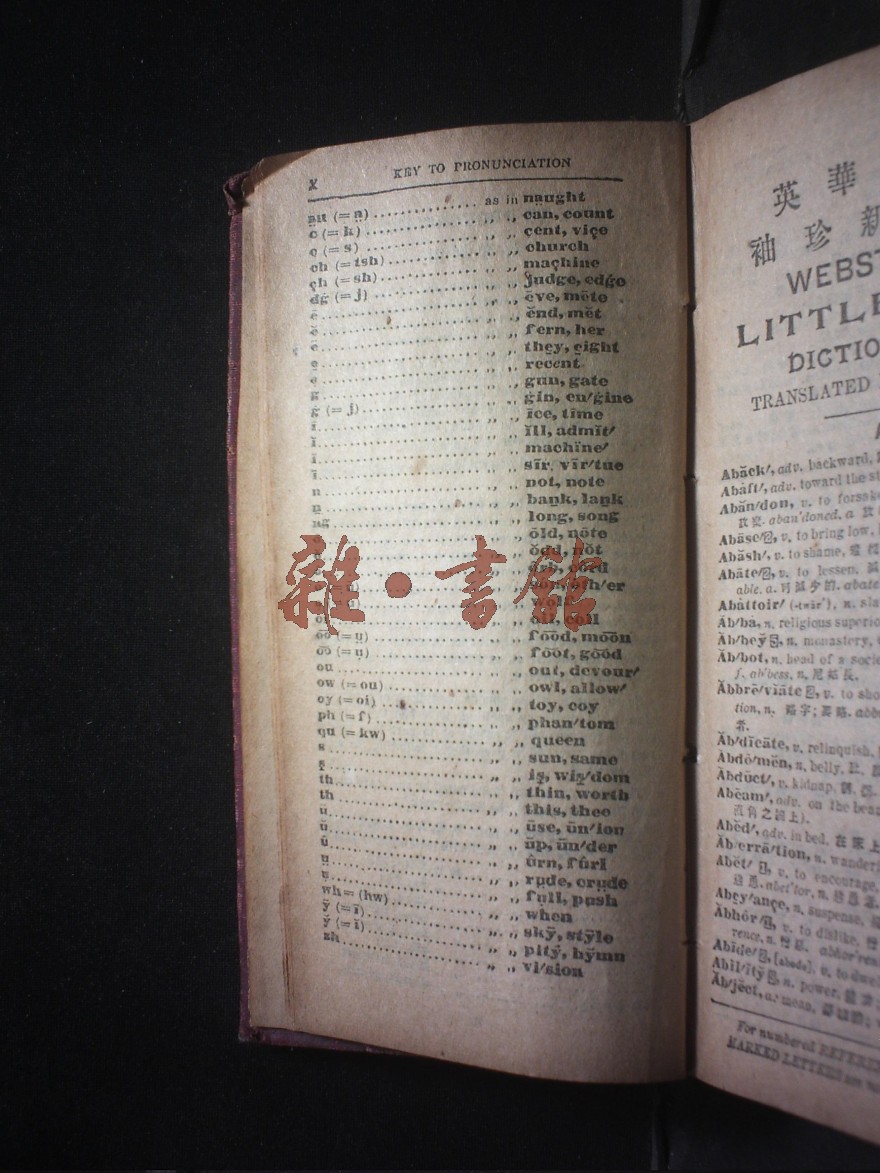 X
KEY TO PRONUNCIATION
a̤u (= a̤) as in na̤ught
c (= k) „ „ can, count
ç (= s) „ „ çent, viçe
ch (= tsh) „ „ church
çh (= sh) „ „ maçhine
dġ (= j) „ „ judge, edġe
ē „ „ ēve, mēte
ĕ „ „ ĕnd, mĕt
„ „ fern, her
e̱ „ „ the̱y, e̱ight
e „ „ recent
g „ „ gun, gate
ġ (= j) „ „ ġin, en′ġine
ī „ „ īce, tīme
ĭ „ „ ĭll, admĭt′
„ „ machïne′
„ „ sïr, vïr′tue
n „ „ not, note
ṉ „ „ baṉk, laṉk
ng „ „ long, song
„ „ ōld, nōte
„ „ ŏdd, nŏt
雜·書館
„ „ oil, coil
o͞o (= ṳ) „ „ fo͞od, mo͞on
o͝o (= ụ) „ „ fo͝ot, go͝od
ou „ „ out, devour′
ow (= ou) „ „ owl, allow′
oy (= oi) „ „ toy, coy
ph (= f) „ „ phan′tom
qu (= kw) „ „ queen
s „ „ sun, same
ş „ „ iş, wiş′dom
th „ „ thin, worth
th „ „ this, thee
ū „ „ ūse, ūn′ion
ŭ „ „ ŭp, ŭn′der
û „ „ ûrn, fûrl
ṳ „ „ rṳde, crṳde
ụ „ „ fụll, pụsh
wh= (hw) „ „ when
ȳ (= ī) „ „ skȳ, stȳle
y̆ (= ĭ) „ „ pity̆, hy̆mn
zh „ „ vi′sion
英 華
袖 珍 新
WEBST
LITTLE
DICTIO
TRANSLATED
Abăck′, adv. backward,
Abăft′, adv. toward the st
Abăn′don, v. to forsake
aban′doned. a
Abāse′, v. to bring low,
Abăsh′, v. to shame,
Abāte′, v. to lessen,
able. a. 可減少的. abate
Abăttoir′ (-twär′), n. sla
Ăb′ba, n. religious superio
Ăb′bey̆, n. monastery,
Ăb′bot, n. head of a socie
f. ab′bess, n,
Ăbbrē′viāte, v. to sho
tion, n. 略字; abb
Ăb′dĭcāte, v. relinquish,
Ăbdō′mĕn, n. belly,
Ăbdŭct′, v. kidnap,
Abēam′, adv. on the bea
Abĕd′, adv. in bed. 在床上
Ăb′errā′tion, n. wander
Abĕt′, v. to encourage,
abet′tor, n.
Abey′ançe, n. suspense,
Ăbhôr′, v. to dislike.
rence, n. abhor′ren
Abīde′, [abode], v. to dwel
Abil′ity̆, n. power,
Ăb′jĕct, a. mean,
For numbered REFERENC
MARKED LETTERS see